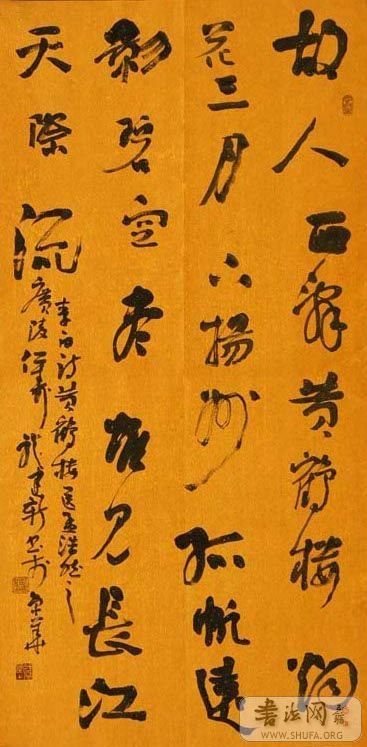 故人西辞黄鹤楼烟
花三月下揚州孤帆遠
影碧空尽唯见長江
天際流
李白诗黄鹤楼送孟浩然之
廣陵
京華
书法网
WWW.SHUFA.ORG